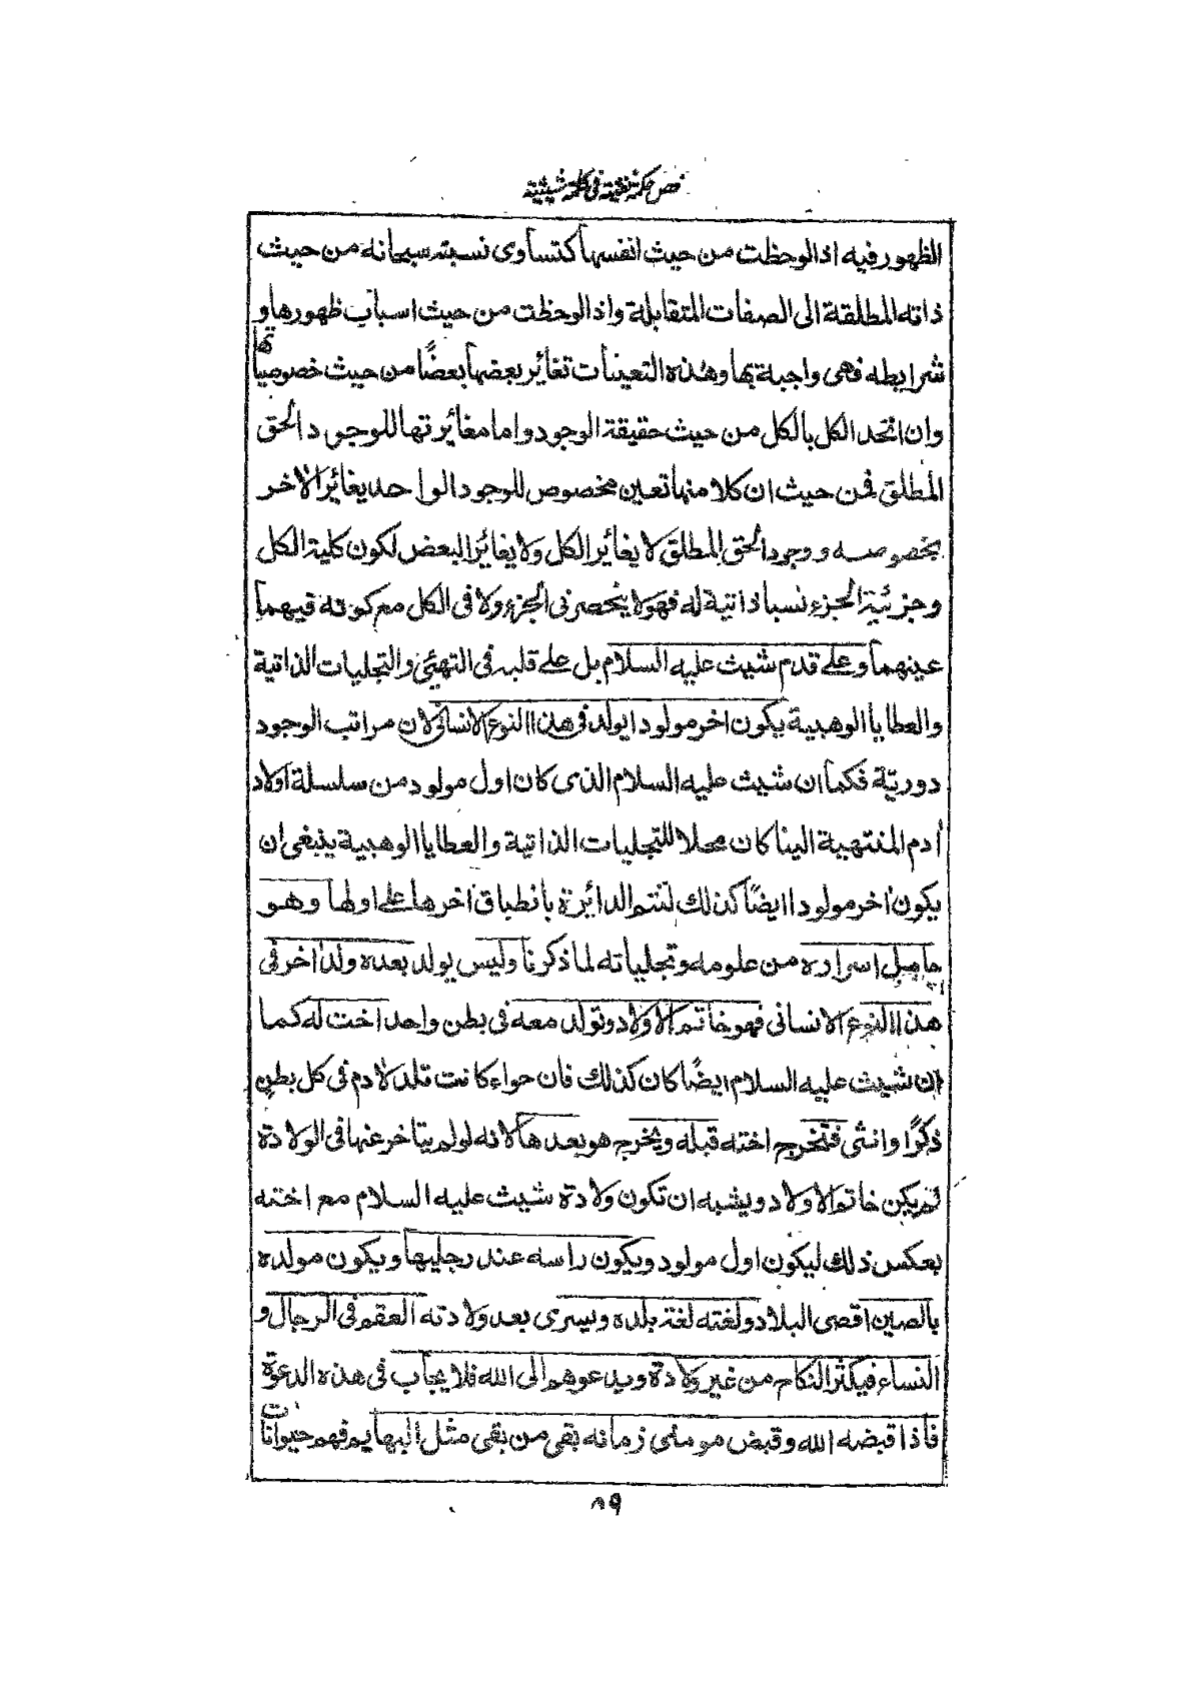 فص حكمة نفثية فى كلمة شيثية
الظهور فيه اذا لوحظت من حيث انفسها كتساوى نسبته سبحانه من حيث
ذاته المطلقة الى الصفات المتقابلة واذا لوحظت من حيث اسباب ظهورها و
شرايطه فهى واجبة بها وهذه التعينات تغائر بعضها بعضًا من حيث خصوصياتها
وان اتحد الكل بالكل من حيث حقيقة الوجود واما مغائرتها للوجود الحق
المطلق فمن حيث ان كلا منها تعين مخصوص للوجود الواحد يغائر الآخر
بخصوصه ووجود الحق المطلق لا يغائر الكل ولا يغائر البعض لكون كلية الكل
وجزئية الجزء نسبا ذاتية له فهو لا ينحصر فى الجزء ولا فى الكل مع كونه فيهما
عينهما وعلى قدم شيث عليه السلام بل على قلبه فى التهيئ والتجليات الذاتية
والعطايا الوهبية يكون اخر مولود يولد فى هذا النوع الانسانى لان مراتب الوجود
دورية فكما ان شيث عليه السلام الذى كان اول مولود من سلسلة اولاد
أدم المنتهية الينا كان محلا للتجليات الذاتية والعطايا الوهبية ينبغى ان
يكون اخر مولود ايضًا كذلك لتتم الدائرة بانطباق اخرها على اولها وهو
حامل اسراره من علومه وتجلياته لما ذكرنا وليس يولد بعده ولد اخر فى
هذا النوع الانسانى فهو خاتم الاولاد وتولد معه فى بطن واحد اخت له كما
ان شيث عليه السلام ايضًا كان كذلك فان حواء كانت تلد لادم فى كل بطن
ذكرًا وانثى فتخرج اخته قبله ويخرج هو بعدها لانه لو لم يتاخر عنها فى الولادة
لم يكن خاتم الاولاد ويشبه ان تكون ولادة شيث عليه السلام مع اخته
بعكس ذلك ليكون اول مولود ويكون راسه عند رجليها ويكون مولده
بالصين اقصى البلاد ولغته لغة بلده ويسرى بعد ولادته العقم فى الرجال و
النساء فيكثر النكاح من غير ولادة ويدعوهم الى الله فلا يجاب فى هذه الدعوة
فاذا قبضه الله وقبض مومنى زمانه بقى من بقى مثل البهايم فهم حيوانات
٨٩